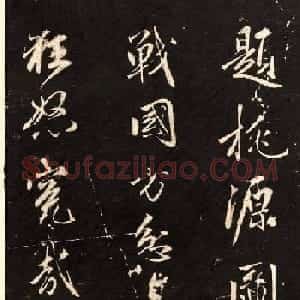 題桃源圖
戰國方忿
狂怒寃哉
Shufaziliao.COM